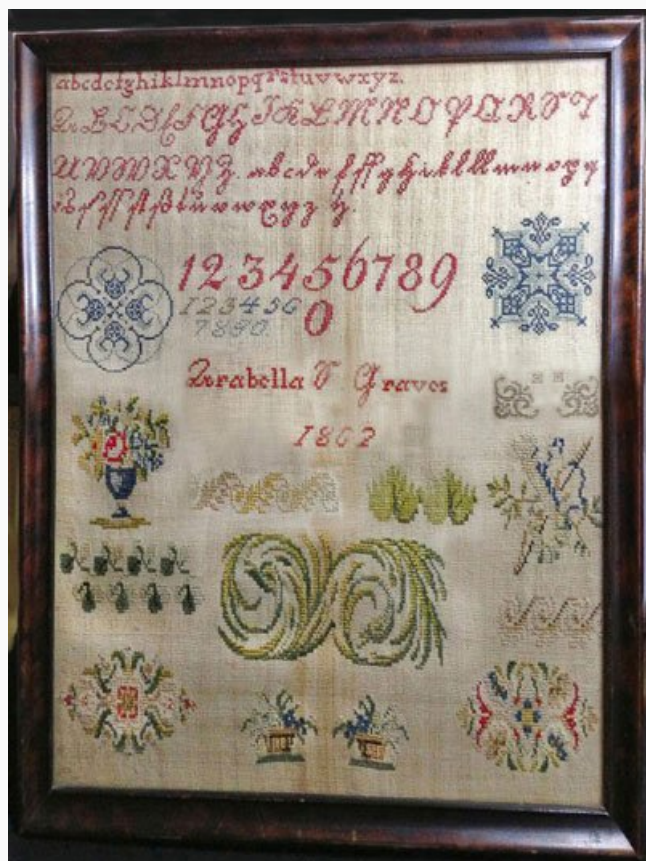 abcdefghiklmnopqrstuvwxyz.
A B C D E F G H I K L M N O P Q R S T
U V W X Y Z. a b c d e f ff g h i k l ll m n o p q
r s ſ ſſ ſt ß t u v w x y z
1234567890
123456
7890.
Arabella S Graves
1862